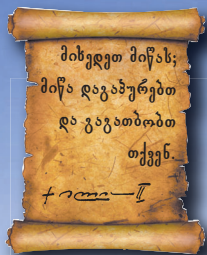 მიხედეთ მიწას;
მიწა დაგაპურებთ
და გაგათბობთ
თქვენ.
+ ილია II